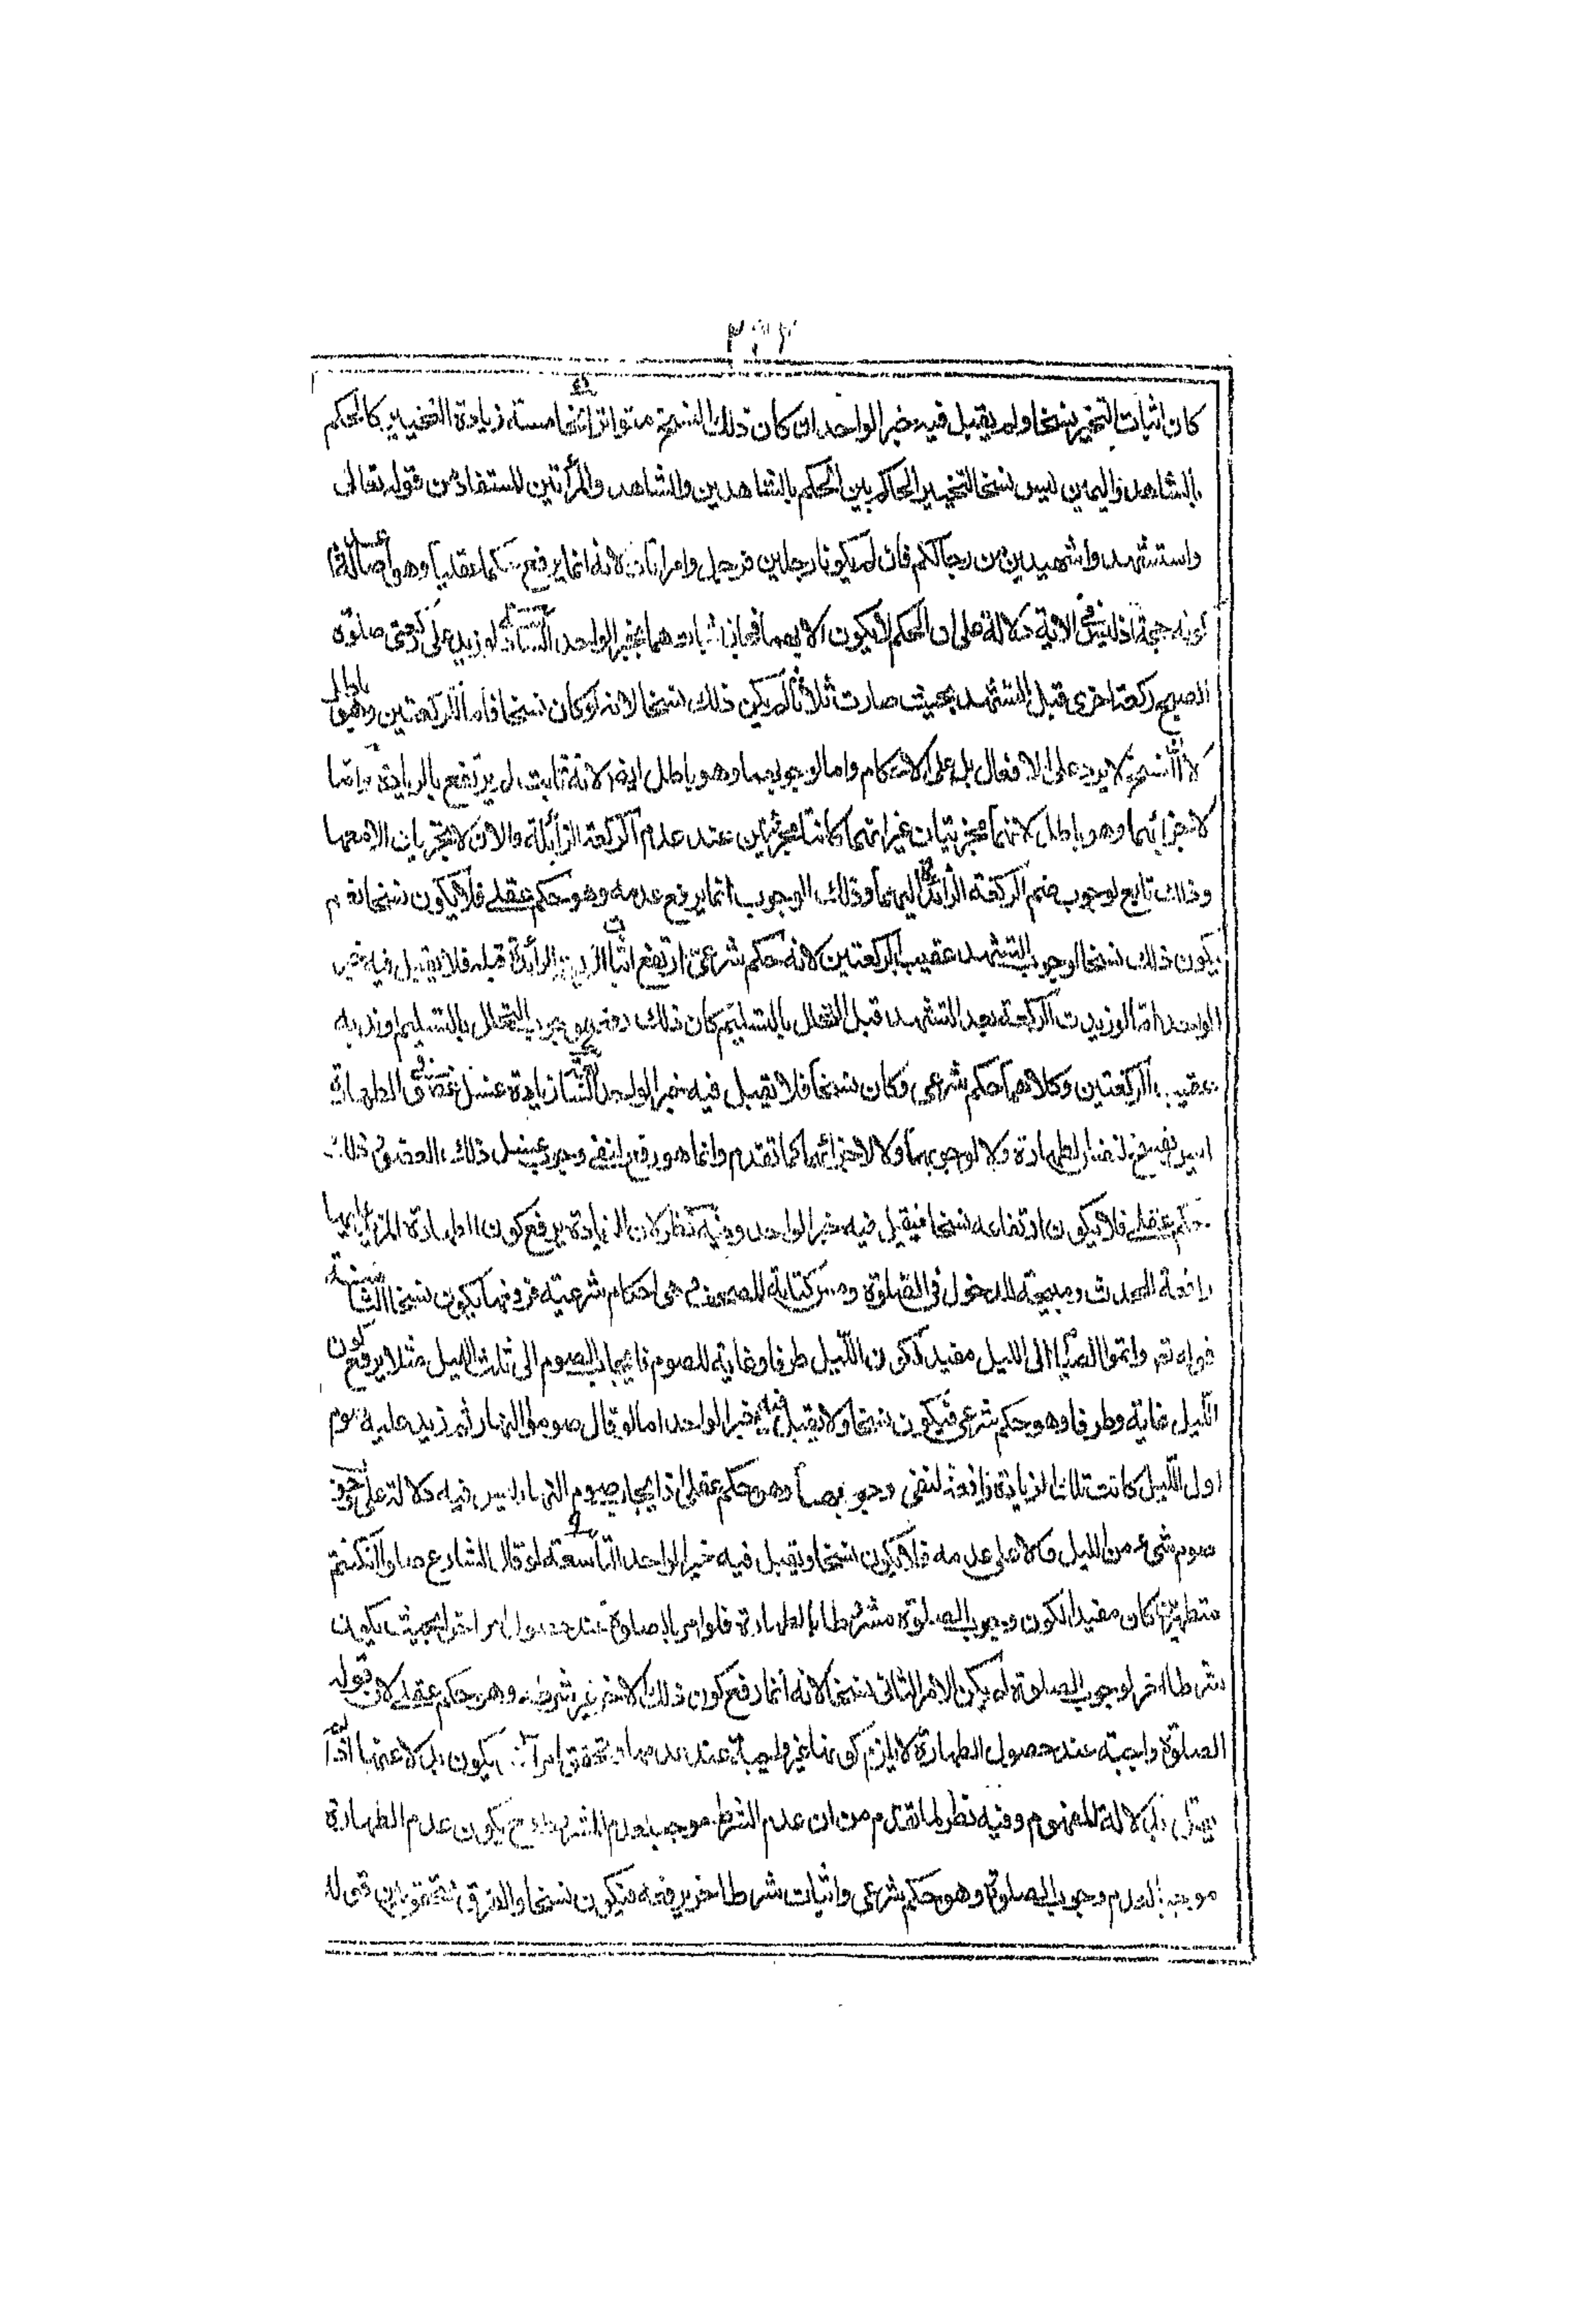 كان اثبات التخيير نسخا ولم يقبل فيه خبر الواحد ان كان ذلك النسخ متواترا الخامسة زيادة التخيير كالحكم
بالشاهد واليمين ليس نسخا لتخيير الحاكم بين الحكم بالشاهدين والشاهد والمرأتين المستفاد من قوله تعالى
واستشهدوا شهيدين من رجالكم فان لم يكونا رجلين فرجل وامراتان لانه انما يرفع حكما عقليا وهو اصالة عدم
كونه حجة اذ ليس في الاية دلالة على ان الحكم لا يكون الا بهما فجاز اثباتهما بخبر الواحد السادسة لو زيد على ركعتي صلوة
الصبح ركعة اخرى قبل التشهد بحيث صارت ثلاثا لم يكن ذلك نسخا لانه لو كان نسخا فاما للركعتين وهو باطل
لان النسخ لا يرد على الافعال بل على الاحكام واما لوجوبهما وهو باطل ايضا لانه ثابت لم يرتفع بالزيادة واما
لاجزائهما وهو باطل لانهما مجزيتان غير انهما كانتا مجزيتين عند عدم الركعة الزائدة والان لا تجزيان الا معها
وذلك تابع لوجوب ضم الركعة الزائدة اليهما وذلك الوجوب انما يرفع عدمه وهو حكم عقلي فلا يكون نسخا نعم
يكون ذلك نسخا لوجوب التشهد عقيب الركعتين لانه حكم شرعي ارتفع باثبات الزائدة قبله فلا يقبل فيه خبر
الواحد اما لو زيدت الركعة بعد التشهد قبل التحلل بالتسليم كان ذلك رفع لوجوب التحلل بالتسليم وندبه
عقيب الركعتين وكلاهما حكم شرعي وكان نسخا فلا يقبل فيه خبر الواحد السابعة زيادة غسل عضو في الطهارة
ليس نسخ لنفس الطهارة ولا لوجوبها ولا لاجزائها كما تقدم وانما هو رفع لنفي وجوب غسل ذلك العضو وذلك
حكم عقلي فلا يكون ارتفاعه نسخا فيقبل فيه خبر الواحد وفيه نظر لان الزيادة يرفع كون الطهارة المزيد عليها
رافعة للحدث ومبيحة للدخول في الصلوة ومس كتابة المصحف وهي احكام شرعية فرفعها يكون نسخا الثامنة
قوله تعم واتموا الصيام الى الليل مفيد لكون الليل طرفا وغاية للصوم فايجاب الصوم الى ثلث الليل مثلا يرفع كون
الليل غاية وطرفا وهو حكم شرعي فيكون نسخا ولا يقبل فيه خبر الواحد اما لو قال صوموا النهار ثم زيد عليه صوم
اول الليل كانت تلك الزيادة رافعة لنفي وجوبها وهو حكم عقلي اذ ايجاب صوم النهار ليس فيه دلالة على وجوب
صوم شيء من الليل ولا على عدمه فلا يكون نسخا ويقبل فيه خبر الواحد التاسعة لو قال الشارع صلوا ان كنتم
متطهرين كان مفيدا لكون وجوب الصلوة مشروطا بالطهارة فلو امر بالصلوة عند حصول امر اخر بحيث يكون
شرطا اخر لوجوب الصلوة لم يكن الامر الثاني نسخا لانه انما رفع كون ذلك الاخر غير شرط وهو حكم عقلي لان قوله
الصلوة واجبة عند حصول الطهارة لا يلزم كونها غير واجبة عند عدمها وتحقق امر اخر يكون بدلا عنها اذا
يقل بدلالة المفهوم وفيه نظر لما تقدم من ان عدم الشرط موجب لعدم المشروط وح يكون عدم الطهارة
موجبا لعدم وجوب الصلوة وهو حكم شرعي واثبات شرط اخر يرفعه فيكون نسخا والفرق متحقق بين قوله